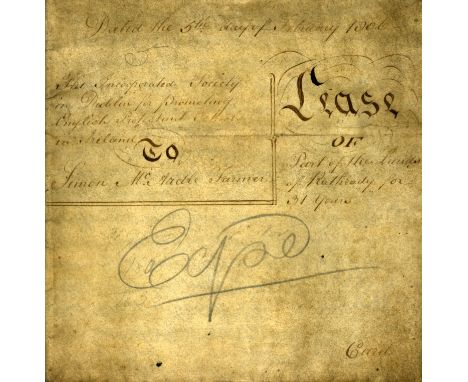 Dated the 5th day of February 180
The Incorporated Society
in Dublin for Promoting
English Protestant
in Ireland
To
Simon Mc Ardle Farmer
Lease
OF
Part of the Lands
of Rathbody for
31 Years